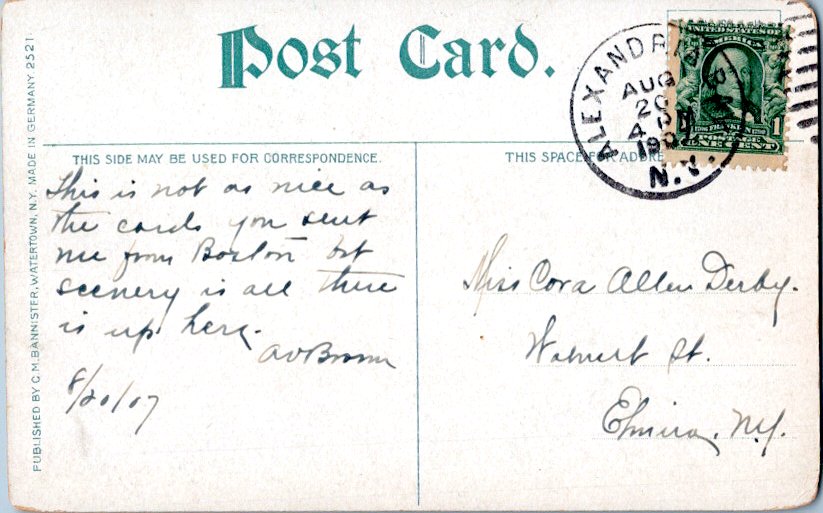 Post Card.
THIS SIDE MAY BE USED FOR CORRESPONDENCE.
THIS SPACE FOR ADDRE
PUBLISHED BY C.M. BANNISTER, WATERTOWN, N.Y. MADE IN GERMANY 2521
ALEXANDRIA BAY
AUG
20
4 PM
1907
N.Y.
UNITED STATES OF
AMERICA
1706 FRANKLIN 1790
POSTAGE
1
ONE CENT
This is not as nice as
the cards you sent
me from Boston but
scenery is all there
is up here.
8/20/07
Miss Cora Allen Derby.
Walnut St.
Elmira, N.Y.